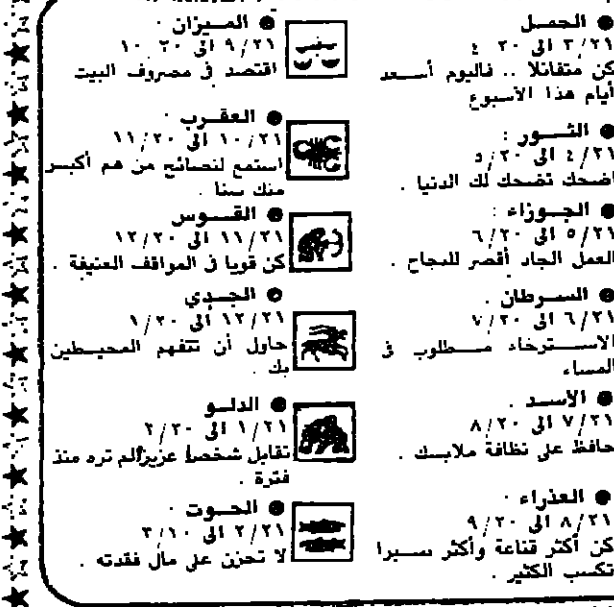 ● الحمـل
٣/٢١ الى ٢٠ ٤
كن متفائلا .. فاليوم أسـعد
أيام هذا الأسبوع
● الثـور :
٤/٢١ الى ٥/٢٠
اضحك تضحك لك الدنيا .
● الجـوزاء :
٥/٢١ الى ٦/٢٠
العمل الجاد أقصر للنجاح .
● السـرطان .
٦/٢١ الى ٧/٢٠
الاسـترخاء مـطلوب في
المساء
● الأسـد .
٧/٢١ الى ٨/٢٠
حافظ على نظافة ملابسك .
● العذراء .
٨/٢١ الى ٩/٢٠
كن أكثر قناعة وأكثر صـبرا
تكسب الكثير .
● الميـزان .
٩/٢١ الى ٢٠ ١٠
اقتصد في مصروف البيت
● العقـرب .
١٠/٢١ الى ١١/٢٠
استمع لنصائح من هم أكبـر
منك سنا .
● القـوس
١١/٢١ الى ١٢/٢٠
كن قويا في المواقف العنيفة .
● الجـدي
١٢/٢١ الى ١/٢٠
حاول أن تتفهم المحيـطين
بك .
● الدلـو
١/٢١ الى ٢/٢٠
تقابل شخصا عزيزا لم تره منذ
فترة .
● الحـوت .
٢/٢١ الى ٣/١٠
لا تحزن على مال فقدته .